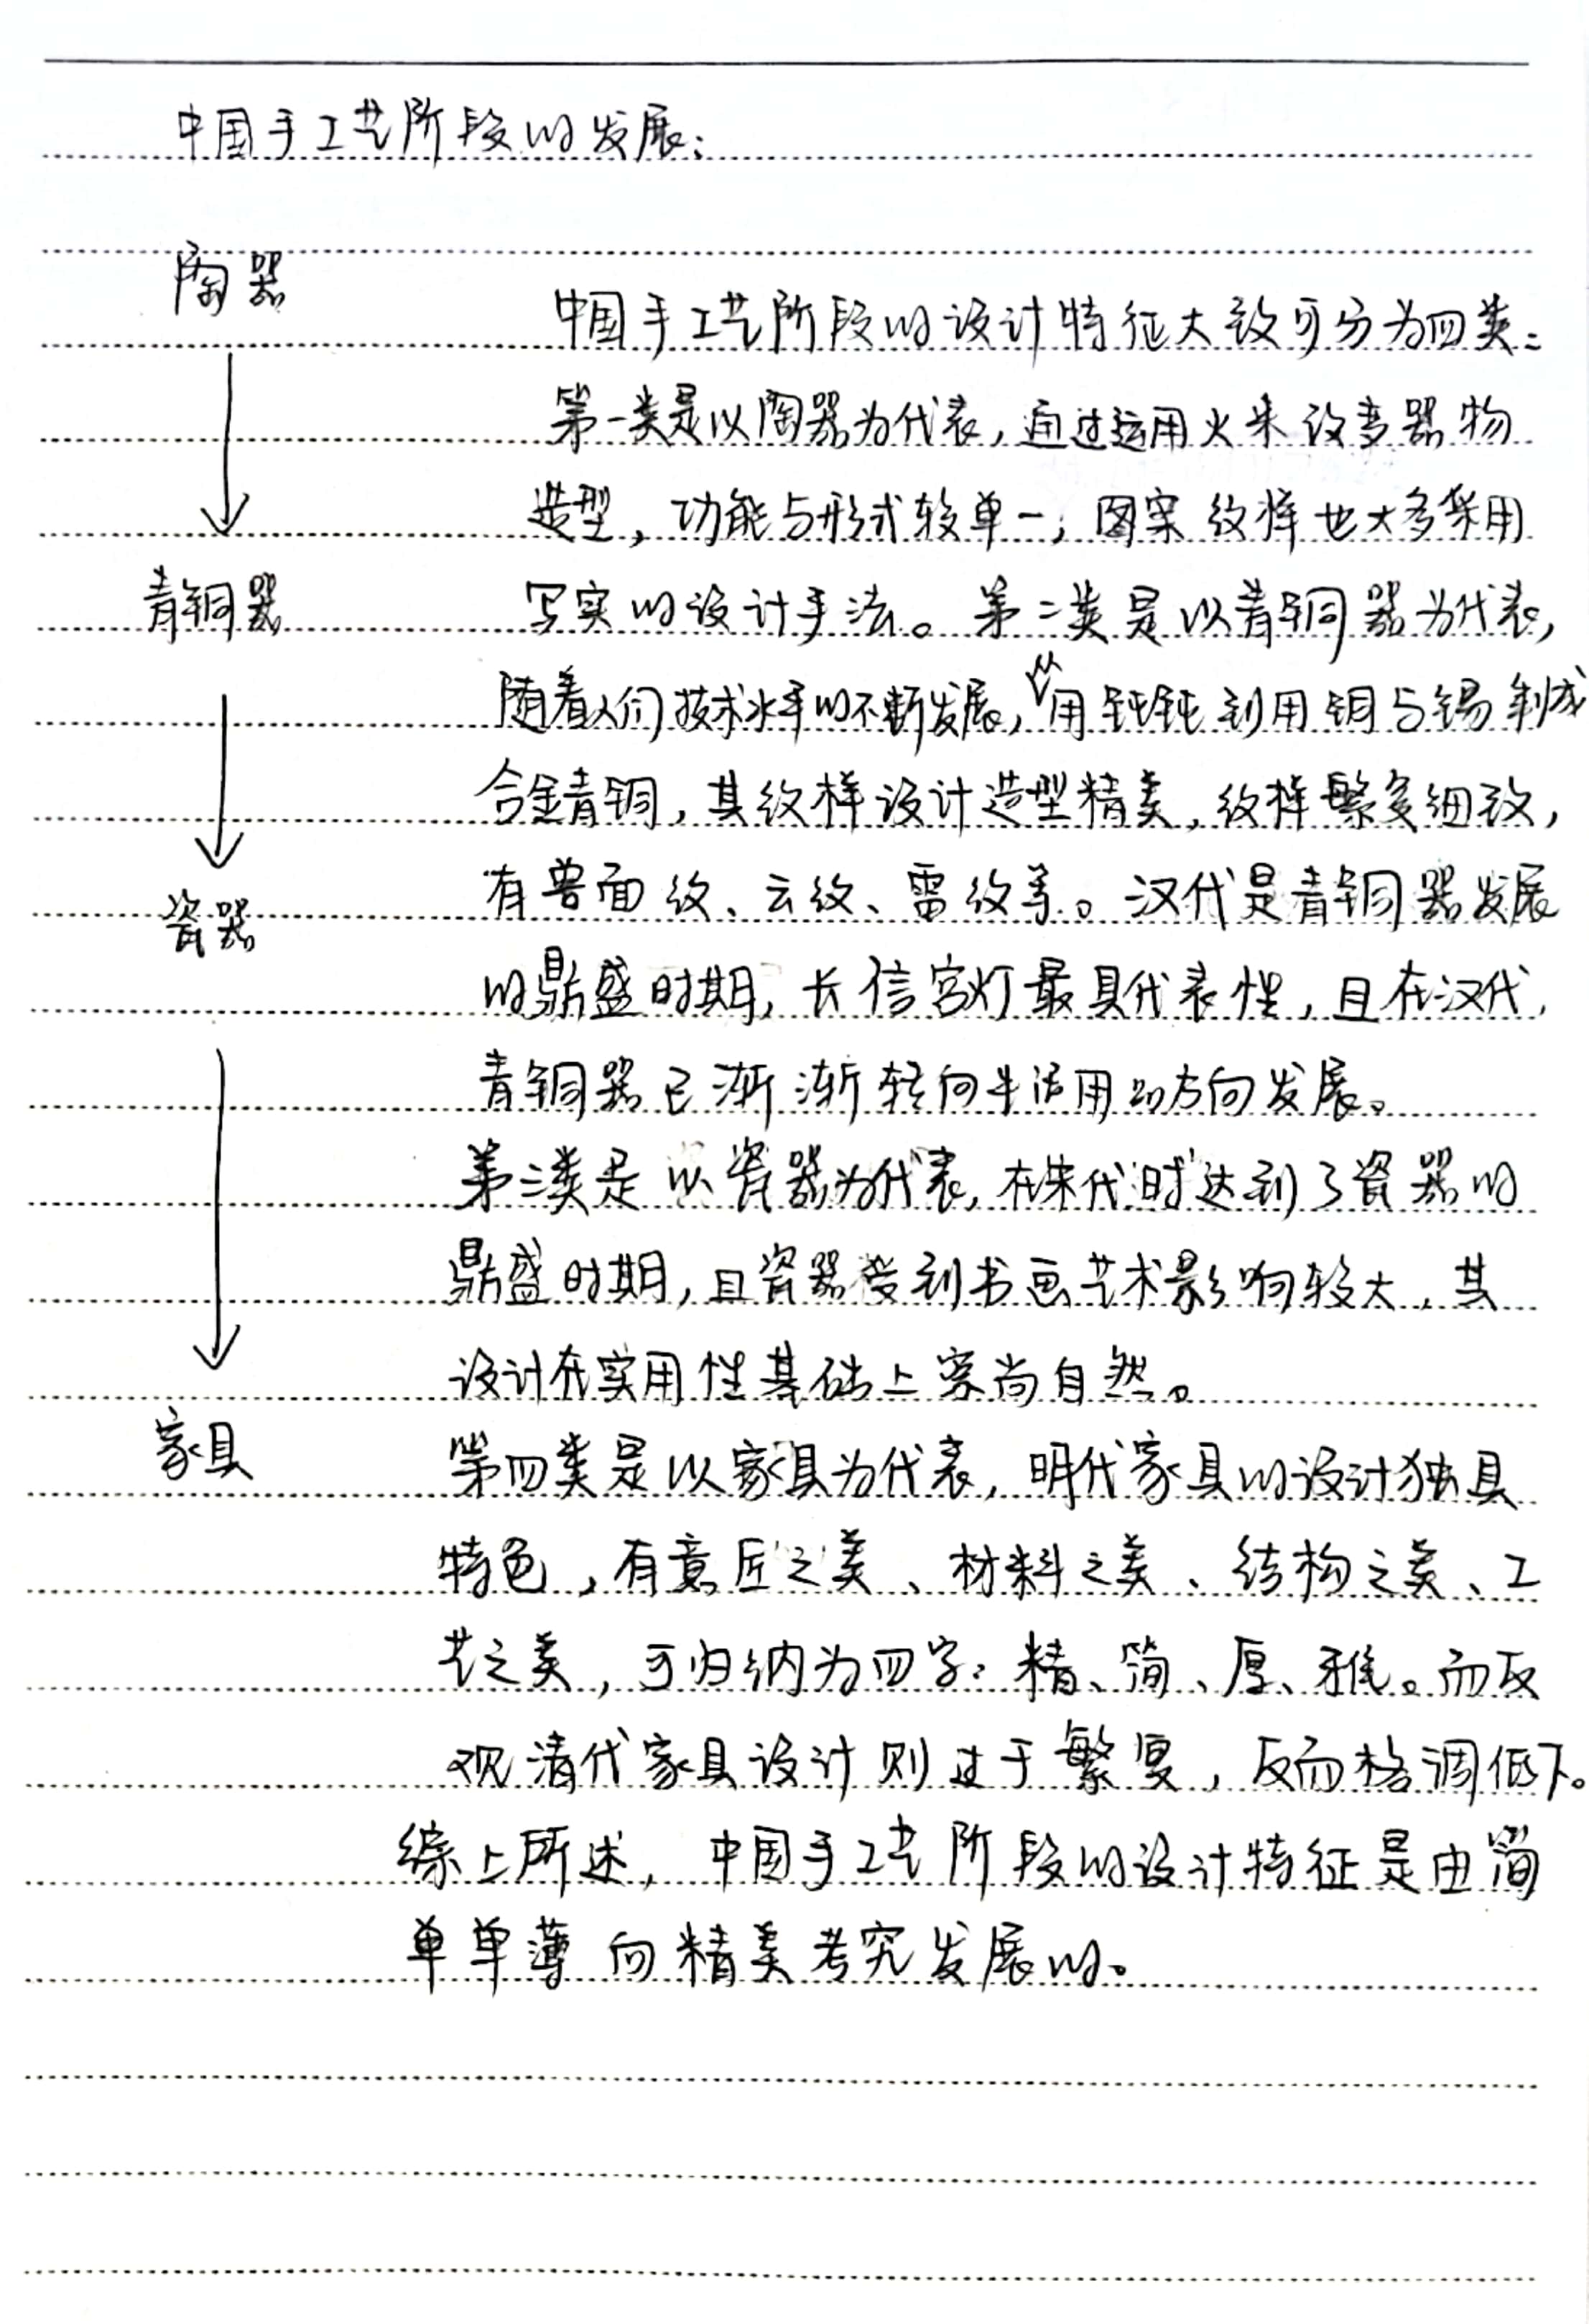 中国手工艺阶段的发展:
陶器
中国手工艺阶段的设计特征大致可分为四类:
第一类是以陶器为代表,通过运用火来改变器物
造型,功能与形式较单一,图案纹样也大多采用
青铜器
写实的设计手法。第二类是以青铜器为代表,
随着人们技术水平的不断发展,从用纯铜到用铜与锡制成
合金青铜,其纹样设计造型精美,纹样繁多细致,
瓷器
有兽面纹、云纹、雷纹等。汉代是青铜器发展
的鼎盛时期,长信宫灯最具代表性,且在汉代,
青铜器已渐渐转向生活用的方向发展。
第三类是以瓷器为代表,在宋代时达到了瓷器的
鼎盛时期,且瓷器受到书画艺术影响较大,其
设计在实用性基础上崇尚自然。
家具
第四类是以家具为代表,明代家具的设计独具
特色,有意匠之美、材料之美、结构之美、工
艺之美,可归纳为四字:精、简、厚、雅。而反
观清代家具设计则过于繁复,反而格调低下。
综上所述,中国手工艺阶段的设计特征是由简
单单薄向精美考究发展的。